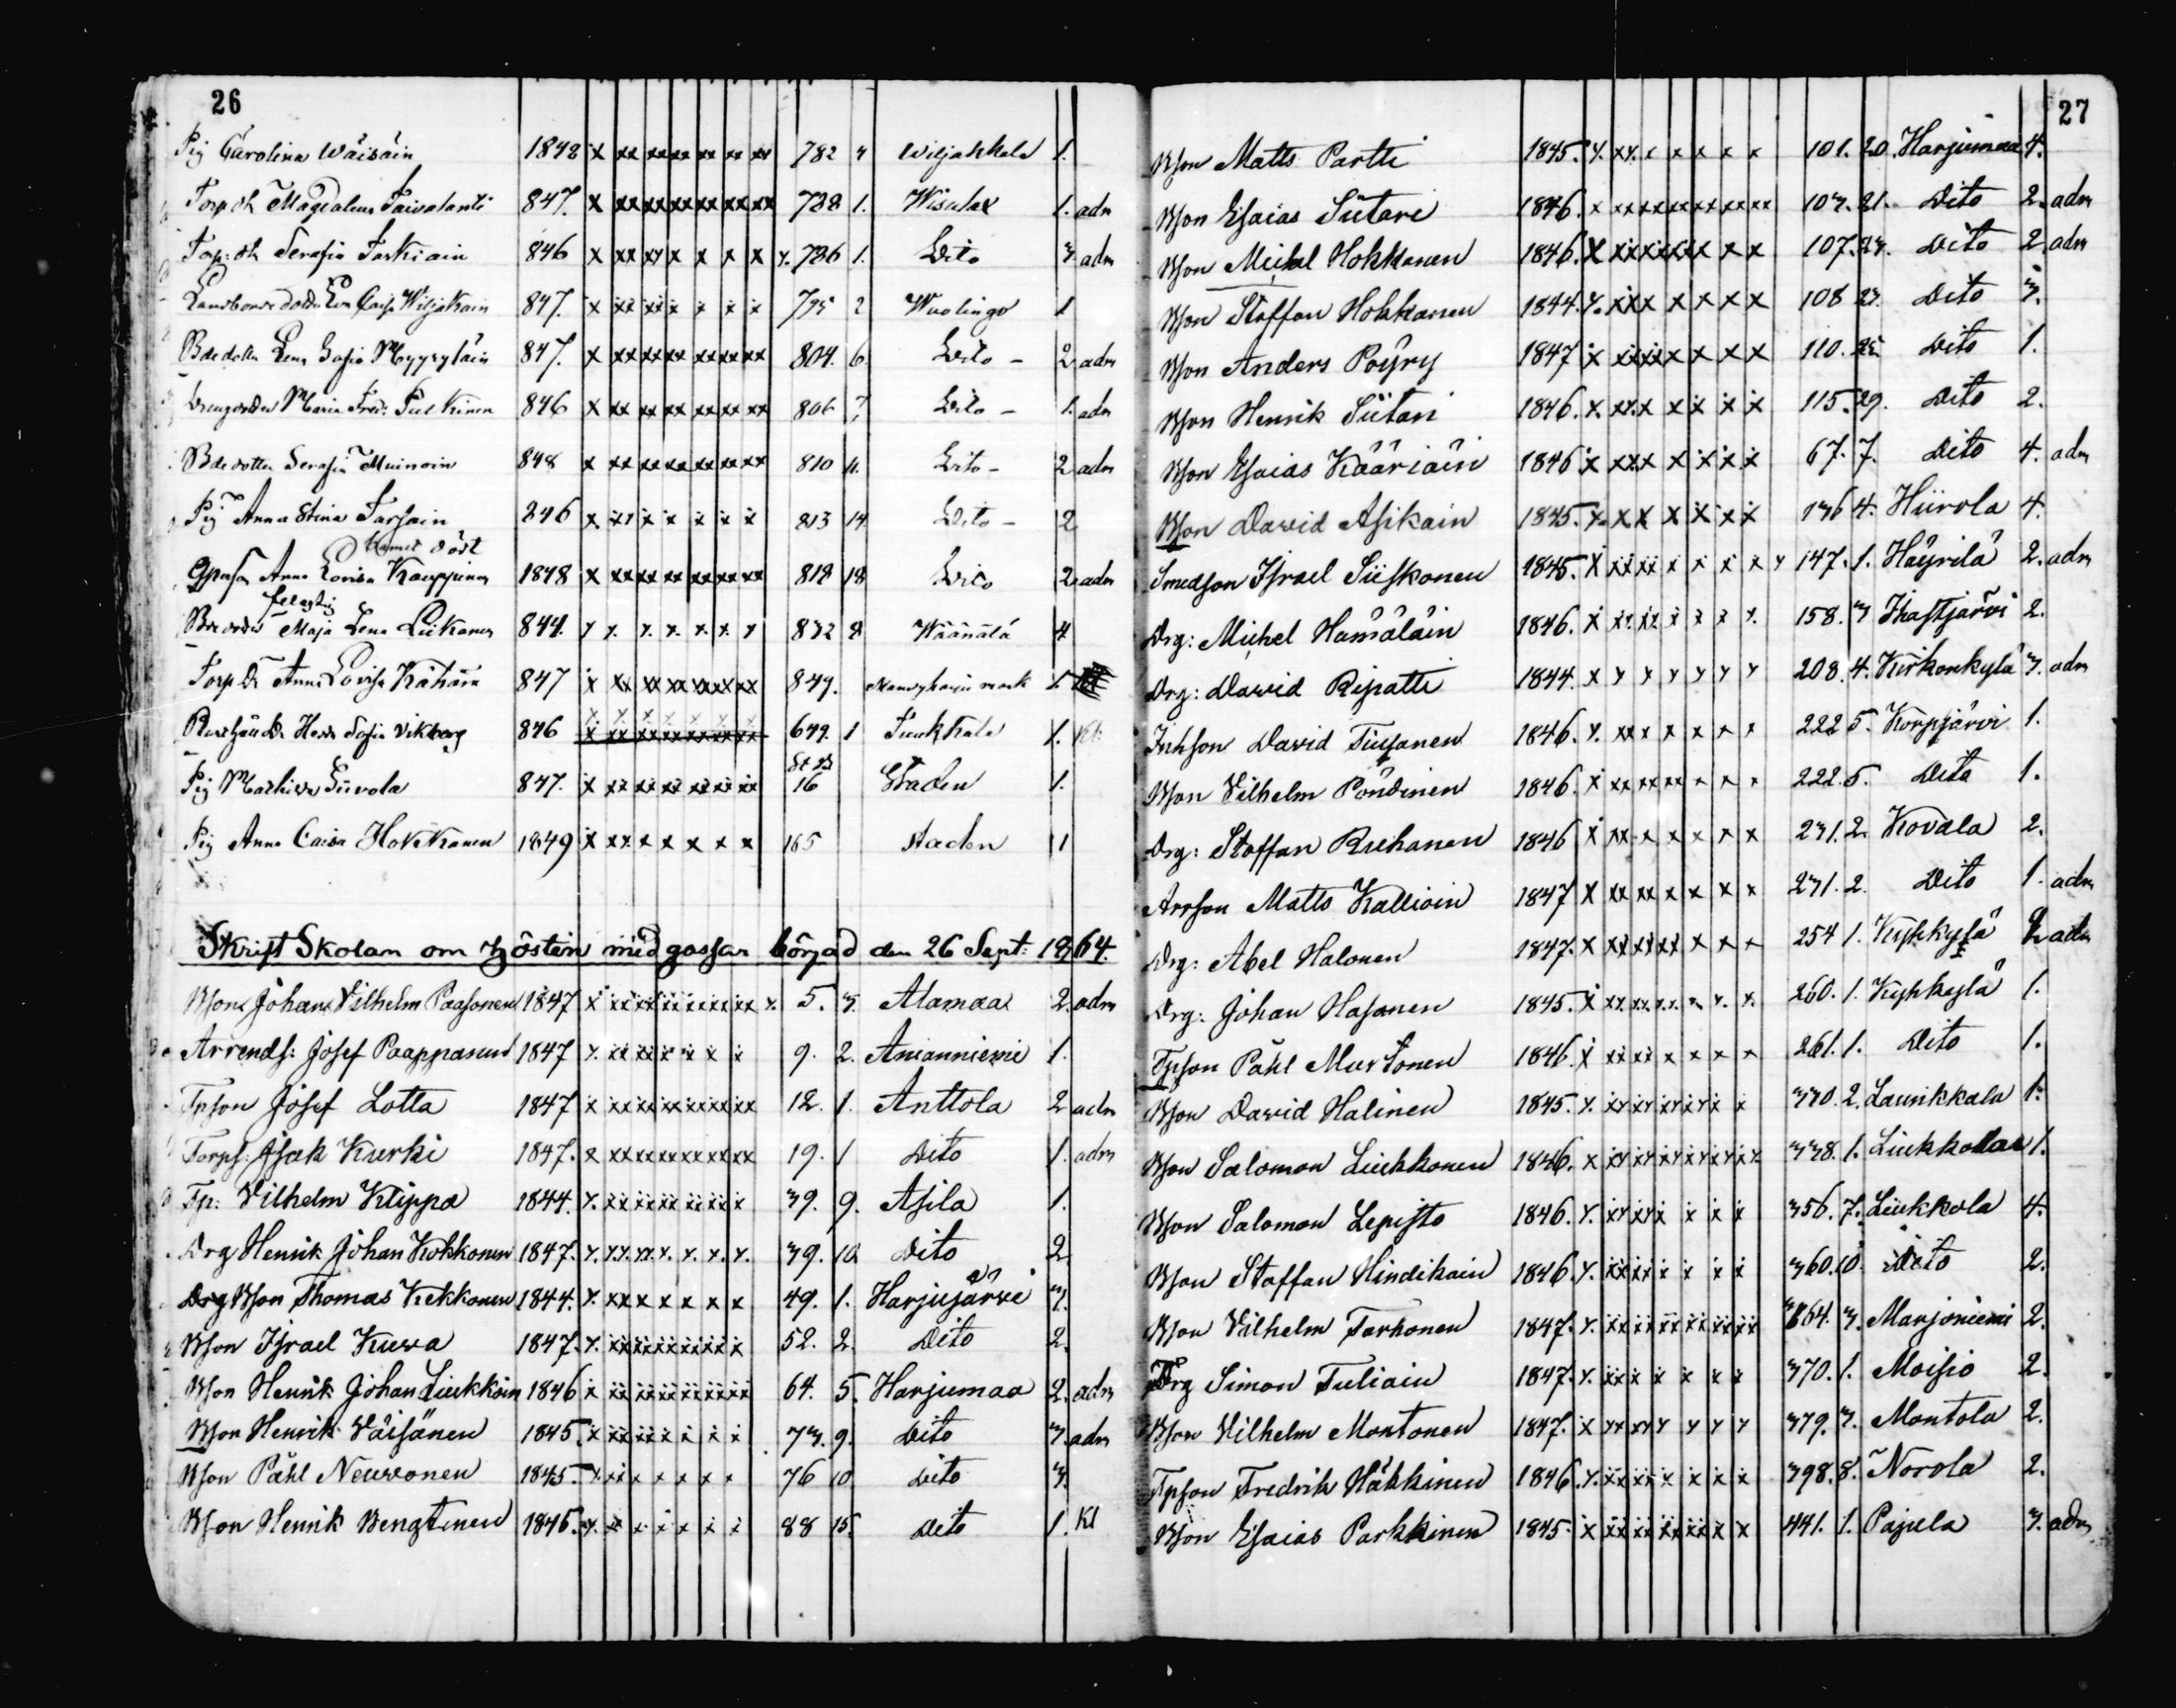 26
Pig Carolina Wäisäin 1848 x xx xx xx xx xx xx 782 Wiljakkala 1.
Torp dr Magdalena Taivalanti 847. x xx xx xx xx xx xx 728 1. Wisulax 1. adm
Torp: dr Serafia Tarkiain 846 x xx xx x x x x x. 726 1. Dito 3 adm
Landbonde dottr Eva Caisa Wiljakain 847. x xx xx x x x x 795 2 Wuolingo 1
Bde dottr Lena Sofia Myyryläin 847. x xx xx xx xx xx xx 804. 6. Dito - 2 adm
Maria Fred: Pulkinen 846 x xx xx xx xx xx xx 806 7 Dito - 1. adm
Bde dotter Serafia Muinoin 848 x xx xx xx xx xx xx 810 11. Dito - 2 adm
Pig Anna Stina Tarsain 846 x xx x x x x x 813 14 Dito - 2
Anna Lovisa Kauppinen 1848 x xx xx xx xx xx xx 818 18 Dito 2 adm
Maja Lena Liikanen 844. x x. x. x. x. x. x 832 8 Wäänälä 4
Torp Dr Anna Lovisa Kähärä 847 x xx xx xx xx xx xx 849. 1.
Sofia Vikberg 846 649. 1 1. Kl.
Pig Mathilda Siivola 847. x xx xx xx xx xx xx 16 Staden 1.
Pig Anna Caisa Hokkanen 1849 x xx x x x x x 165 staden 11
Skrift Skolan om hösten med gossar börjad den 26 Sept: 1864.
Bson Johan Vilhelm Paasonen 1847 x xx xx xx xx xx xx x. 5. 3. Alamaa 2. adm
Arrends: Josef Paappanen 1847 x. xx xx x x x x 9. 2. Anianniemi 1.
Tpson Josef Lotta 1847 x xx xx xx xx xx xx 12. 1. Anttola 2 adm
Torps: Isak Kurki 1847. x xx xx xx xx xx xx 19. 1 Dito 1. adm
Tp: Vilhelm Klippa 1844. x. xx xx xx xx xx x 39. 9. Asila 1.
Drg Henrik Johan Kokkonen 1847. x. xx. xx. x. x. x. x. 39. 10 Dito 2
Bson Thomas Kekkonen 1844. x. xx x x x x x 49. 1. Harjujärvi 3.
Bson Israel Kurva 1847. x. xx xx xx xx xx x 52. 2. Dito 2.
Bson Henrik Johan Liukkoin 1846 x xx xx xx xx xx xx 64. 5. Harjumaa 2. adm
Bson Henrik Väisänen 1845. x xx xx x x x x 73. 9. Dito 3. adm
Bson Påhl Neuvonen 1845. x. xx x x x x x 76 10 Dito 3.
Bson Henrik Bengtinen 1845. x. xx x x x x x 88 15. Dito 1. Kl
27
Bson Matts Partti 1845. x. xx. x x x x x 101. 20. Harjumaa 4.
Bson Esaias Siitari 1846. x xx xx xx xx xx xx 103. 21. Dito 2. adm
Bson Michel Hokkanen 1846. x xx xx xx xx x x 107. 23. Dito 2 adm
Bson Staffan Hokkanen 1844. x. xx x x x x x 108 23. Dito 3.
Bson Anders Pöyry 1847 x xx xx x x x x 110. 25. Dito 1.
Bson Henrik Siitari 1846. x. xx. x x x x x 115. 29. Dito 2.
Bson Esaias Kääriäin 1846 x xx x x x x x 67. 7. Dito 4. adm
Bson David Asikain 1845. x. x x x x x x 136 4. Hiirola 4.
Smedson Israel Siiskonen 1845. x xx xx x x x x x 147. 1. Häyrilä 2. adm
Drg: Michel Hämäläin 1846. x xx. xx. x x x x. 158. 3 Ihastjärvi 2.
Drg: David Ripatti 1844. x x x x x x x 208. 4. Kirkonkylä 3. adm
Inhson David Tiusanen 1846. x. xx x x x x x 222 5. Korpjärvi 1.
Bson Vilhelm Pöndinen 1846. x xx xx xx x x x 222. 5. Dito 1.
Drg: Staffan Ruhanen 1846 x xx x x x x x 231. 2. Kovala 2.
Arrson Matts Kallioin 1847 x xx xx x x x x 231. 2. Dito 1. adm
Drg: Abel Halonen 1847. x xx xx xx x x x 254 1. Kyhkylä 2. adm
Drg: Johan Hasanen 1845. x xx. xx. xx. x x. x. 260. 1. Kyhkylä 1.
Tpson Påhl Murtonen 1846. x xx xx x x x x 261. 1. Dito 1.
Bson David Halinen 1845. x. xx xx xx xx x x 330. 2. Launikkala 1.
Bson Salomon Liukkonen 1846. x xx xx xx xx xx xx 338. 1. Liukkola 1.
Bson Salomon Lepisto 1846. x. xx xx x x x x 356. 7. Liukkola 4.
Bson Staffan Hindikain 1846. x. xx xx x x x x 360. 10. Dito 2.
Bson Vilhelm Tarhonen 1847. x. xx xx xx xx xx xx 364. 3. Marjoniemi 2.
Drg Simon Tuliain 1847. x. xx x x x x x 370. 1. Moisio 2.
Bson Vilhelm Montonen 1847. x xx xx x x x x 379. 3. Montola 2.
Tpson Fredrik Häkkinen 1846. x. xx xx x x x x 398. 8. Norola 2.
Bson Esaias Parkkinen 1845. x xx xx xx xx x x 441. 1. Pajula 3. adm